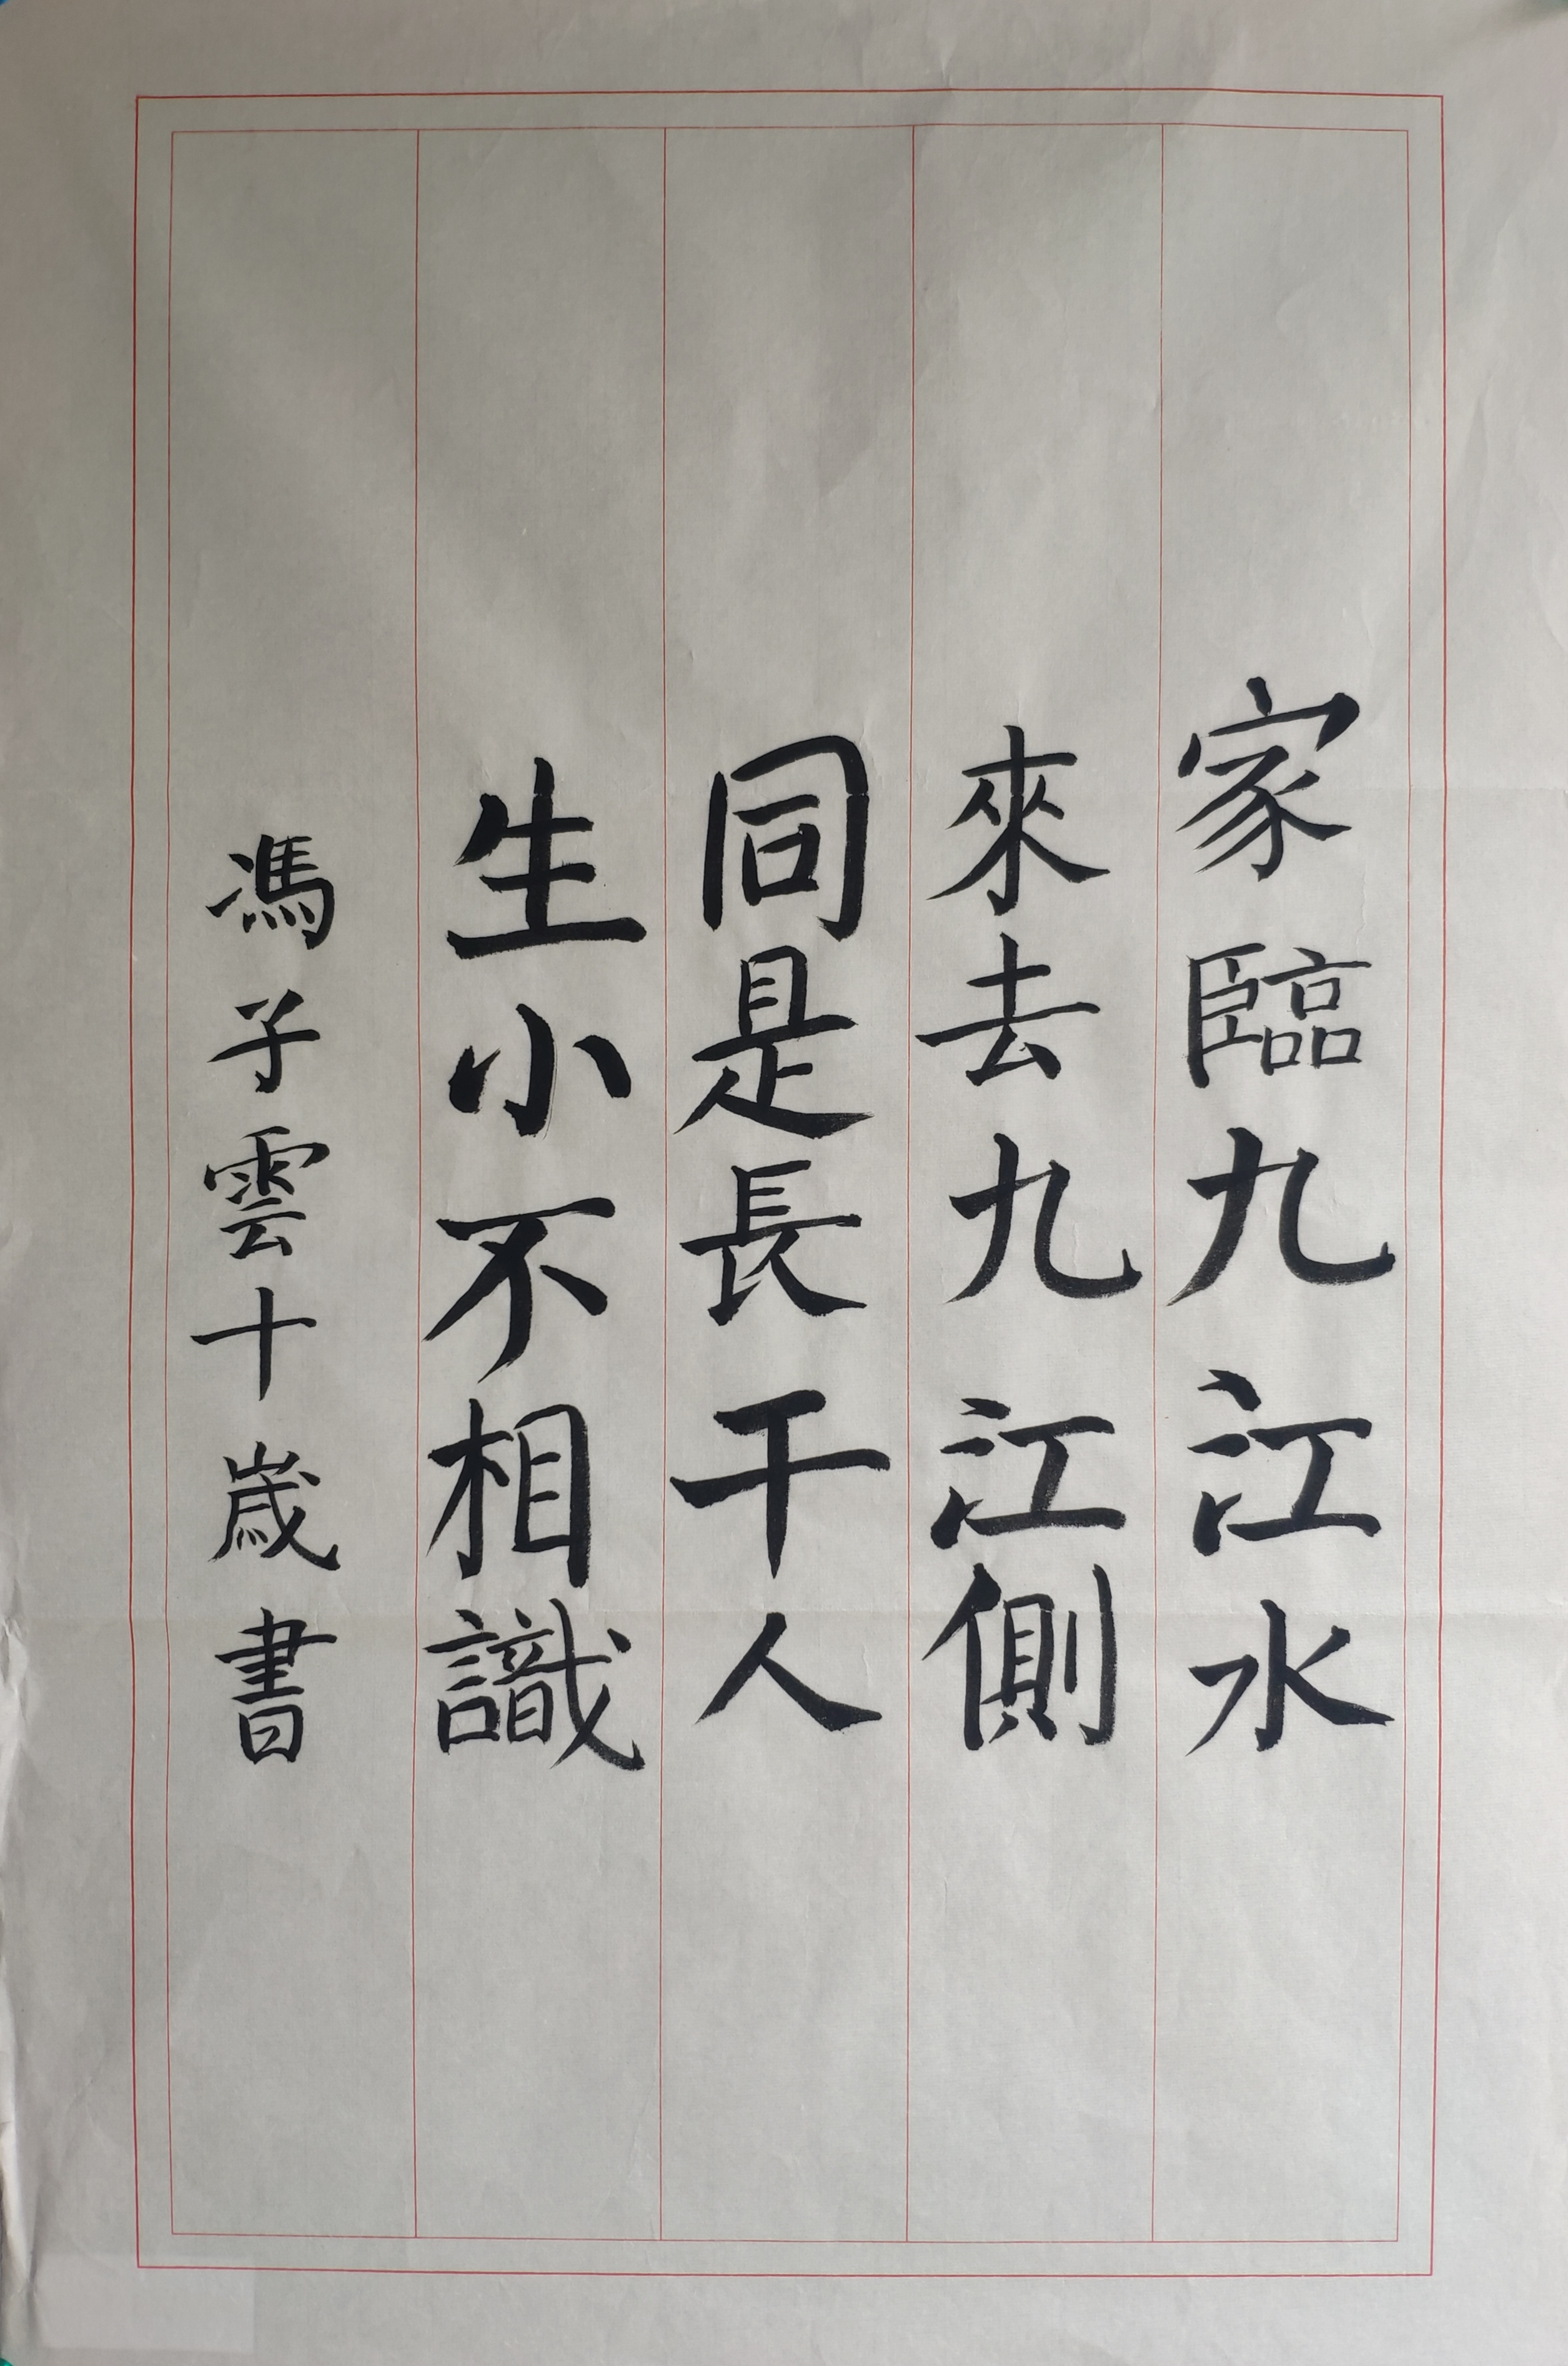 家臨九江水
來去九江側
同是長干人
生小不相識
馮子雲十歲書